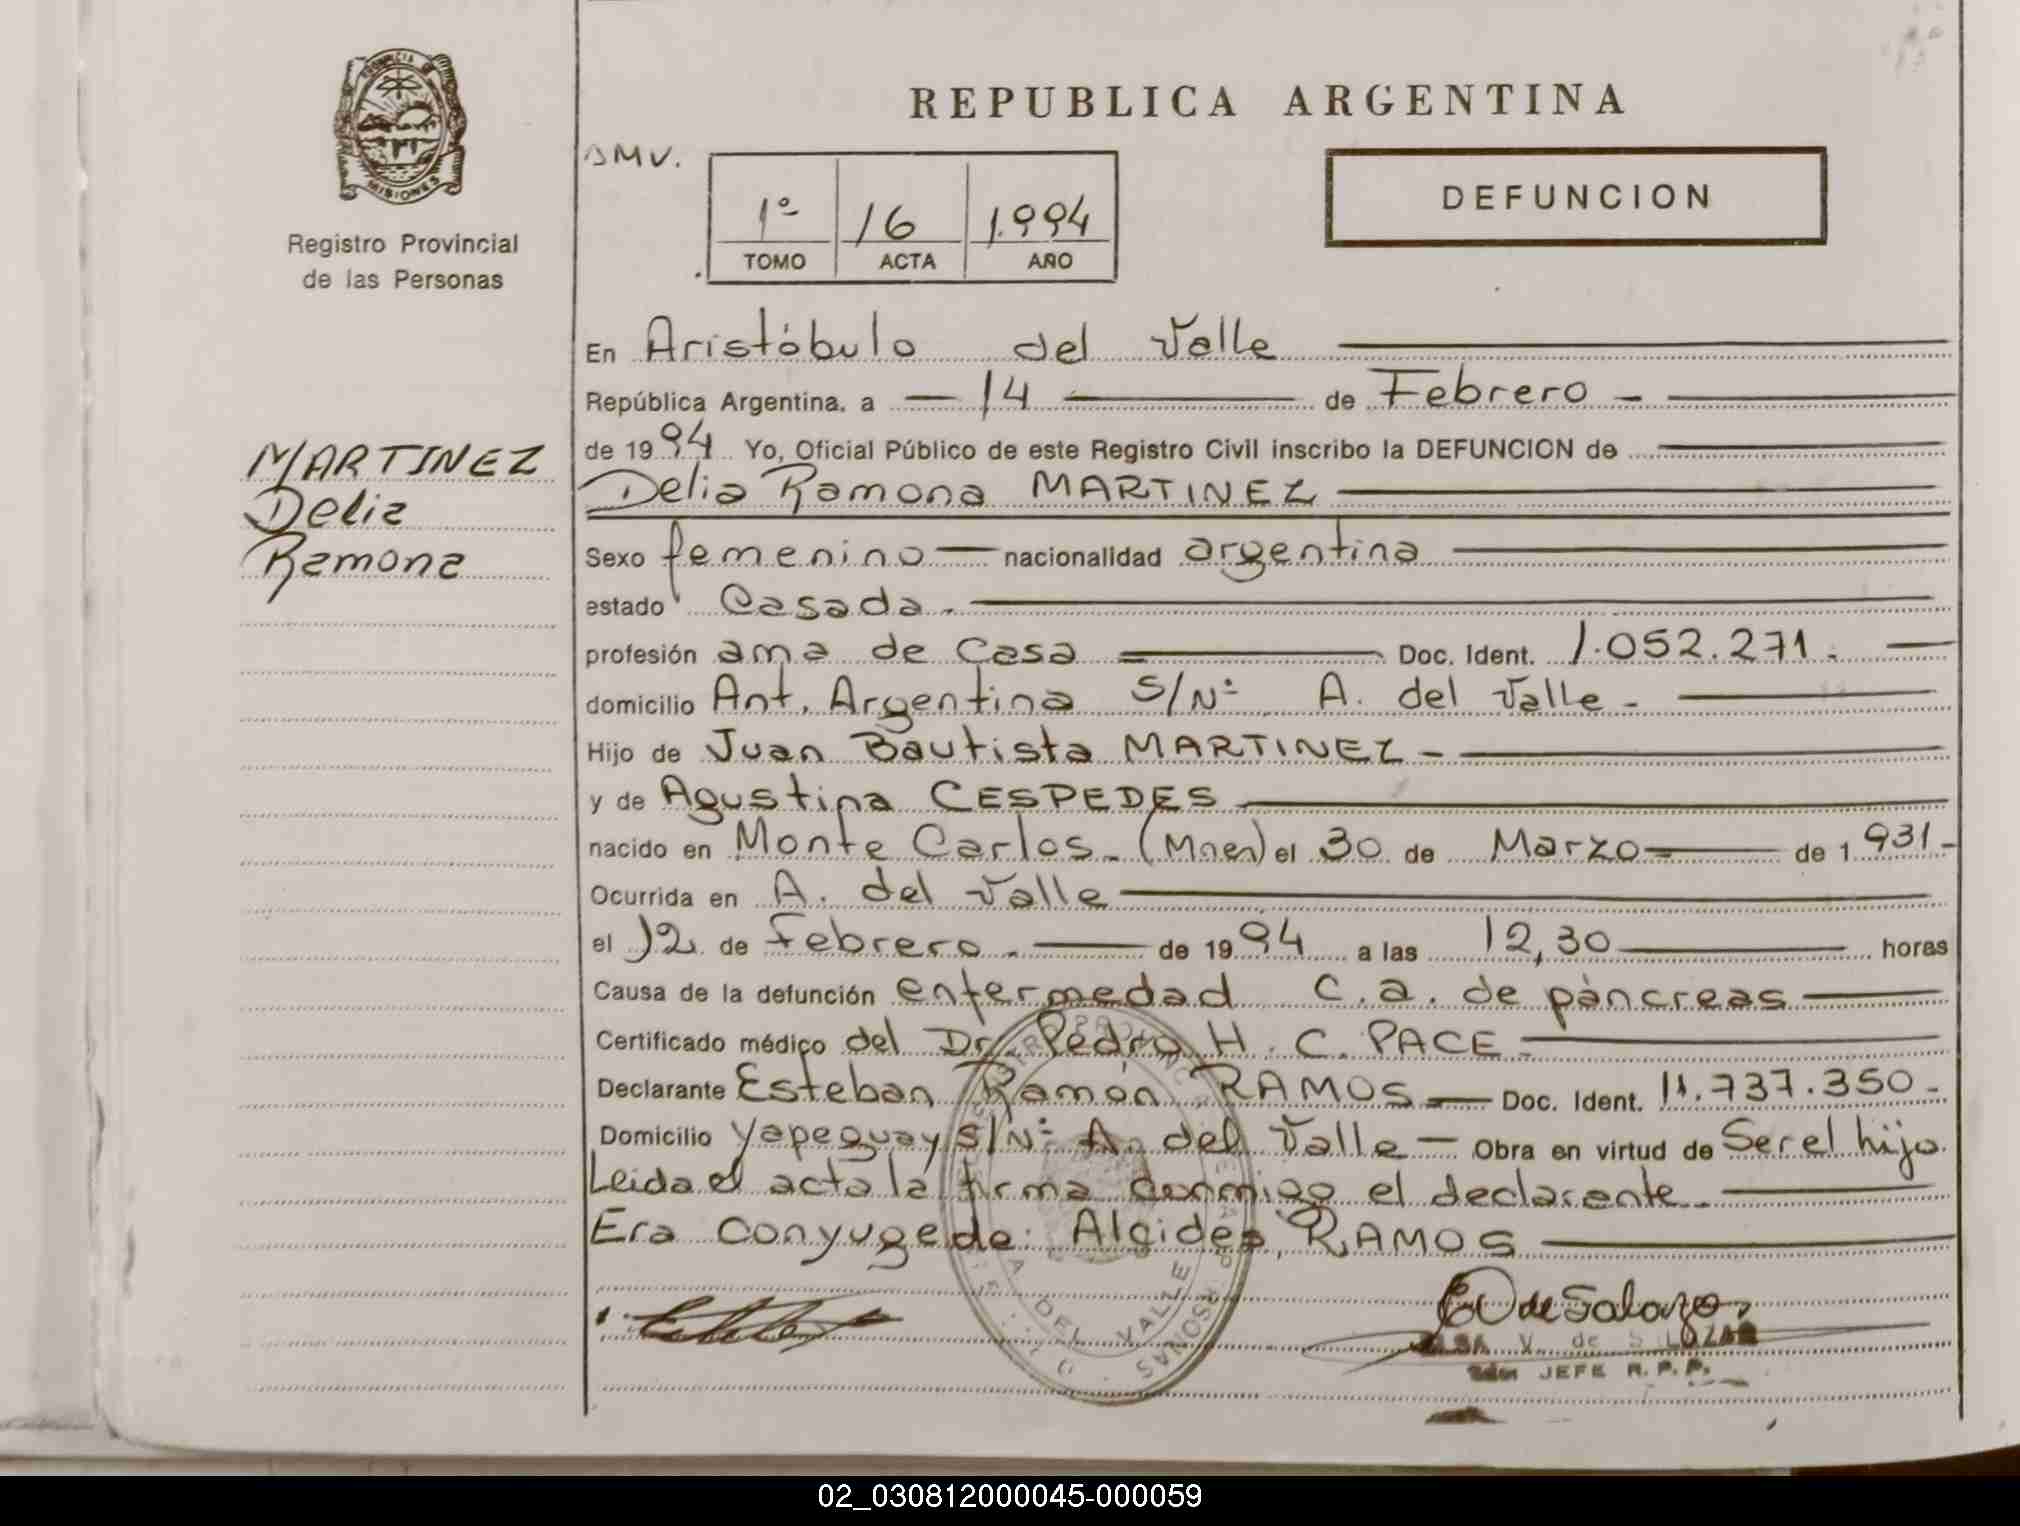 PROVINCIA DE
MISIONES
Registro Provincial
de las Personas
MARTINEZ
Delia
Ramona
REPUBLICA ARGENTINA
DMV.
1º 16 1.994
TOMO ACTA AÑO
DEFUNCION
En Aristóbulo del Valle
República Argentina, a 14 de Febrero
de 1994 Yo, Oficial Público de este Registro Civil inscribo la DEFUNCION de
Delia Ramona MARTINEZ
Sexo femenino nacionalidad argentina
estado Casada.
profesión ama de Casa Doc. Ident. 1.052.271.
domicilio Ant. Argentina S/Nº A. del Valle
Hijo de Juan Bautista MARTINEZ
y de Agustina CESPEDES
nacido en Monte Carlos (Mnes) el 30 de Marzo de 1931
Ocurrida en A. del Valle
el 12 de Febrero. de 1994 a las 12,30 horas
Causa de la defunción enfermedad C.a. de páncreas
Certificado médico del Dr. Pedro H. C. PACE
Declarante Esteban Ramón RAMOS Doc. Ident. 11.737.350
Domicilio Yapeguay S/Nº A. del Valle Obra en virtud de Ser el hijo.
Leida el acta la firma conmigo el declarente.
Era Conyuge de: Alcides RAMOS
A. DEL VALLE
de Salazar
ELSA V. de SALAZAR
JEFE R.P.P.
02_030812000045-000059